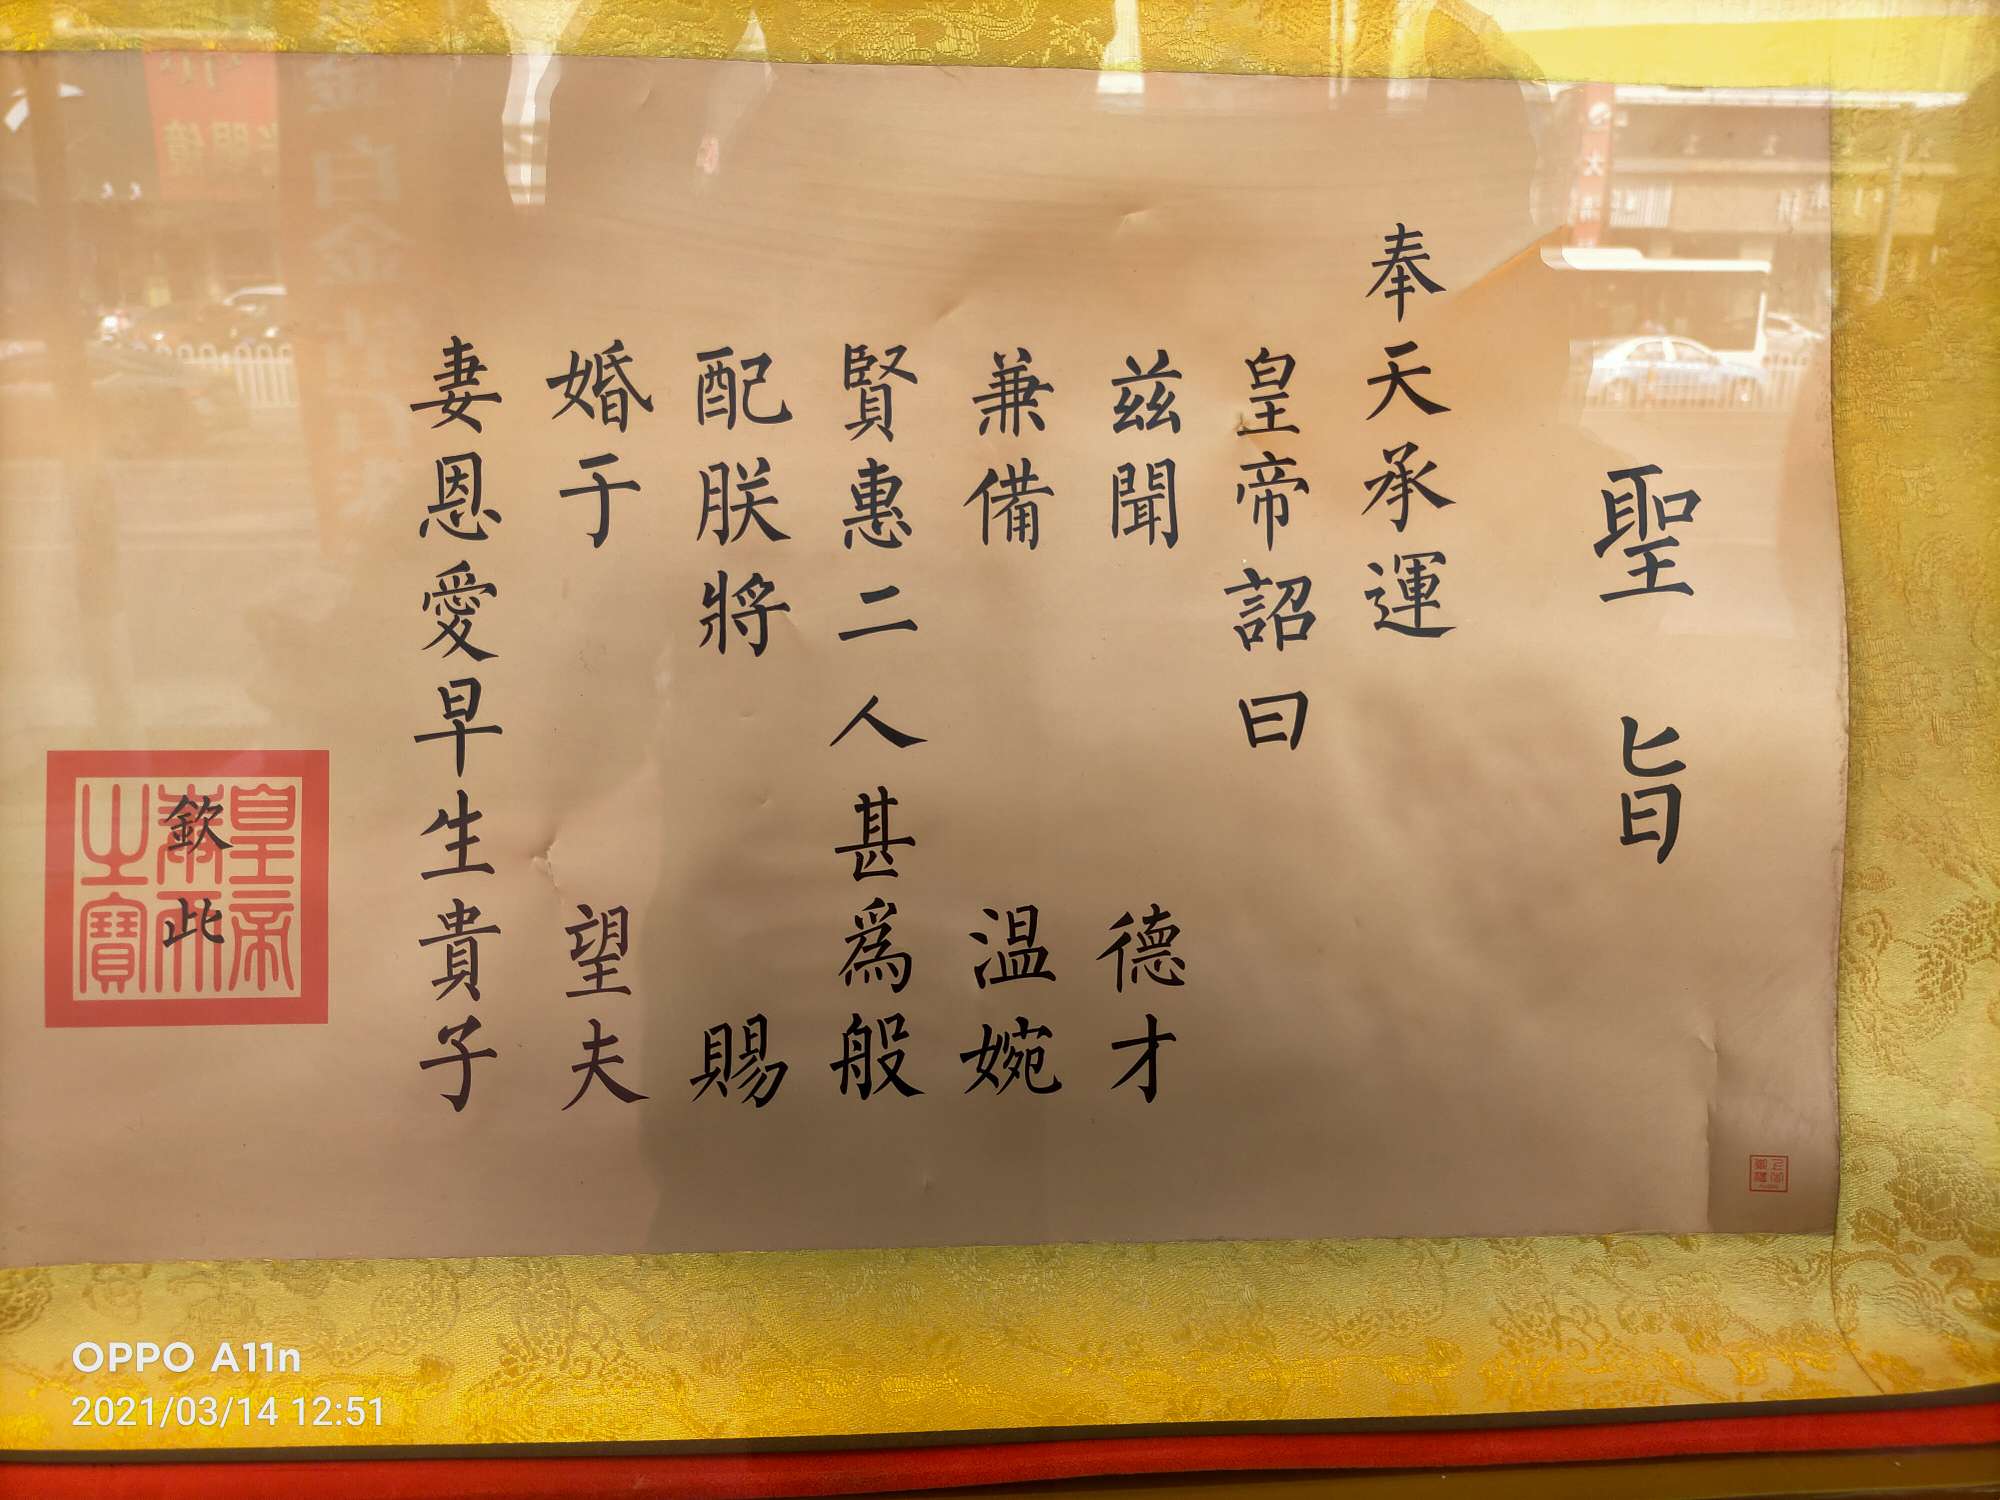 聖旨
奉天承運
皇帝詔曰
茲聞 德才
兼備 温婉
賢惠二人甚爲般
配朕將 賜
婚于 望夫
妻恩愛早生貴子
欽此
皇帝
之寶
OPPO A11n
2021/03/14 12:51